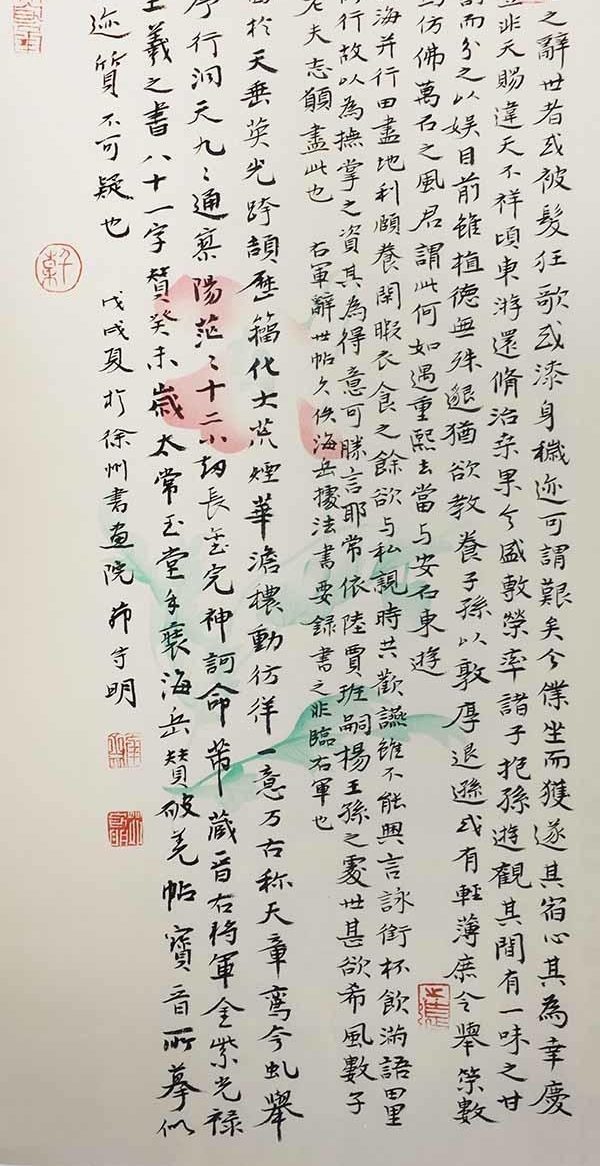 之辭世者或被髮狂歌或漆身穢迹可謂艱矣今僕坐而獲遂其宿心其為幸慶
非天賜違天不祥頃東游還脩治桑果今盛敷榮率諸子抱孫遊觀其間有一味之甘
割而分之以娛目前雖植德無殊邈猶欲教養子孫以敦厚退遜或有輕薄庶令舉策數
馬仿佛萬石之風君謂此何如遇重熙去當与安石東遊
海并行田盡地利頤養閑暇衣食之餘欲与私親時共歡讌雖不能興言詠銜杯飲滿語田里
行故以為撫掌之資其為得意可勝言耶常依陸賈班嗣楊王孫之處世甚欲希風數子
老夫志願盡此也
右軍辭世帖久佚海岳據法書要録書之非臨右軍也
於天垂英光跨頡歷籀化士荒煙華澹穠動彷徉一意万古称天章鸞今虬舉
序行洞天九〻通寥陽茫〻十二小劫長玉完神訶命芾藏晋右将軍金紫光禄
王羲之書八十一字贊癸未歲太常玉堂手裝海岳贊破羌帖寳晋所摹似
迹質不可疑也
戊戌夏於徐州書画院茆守明
軒